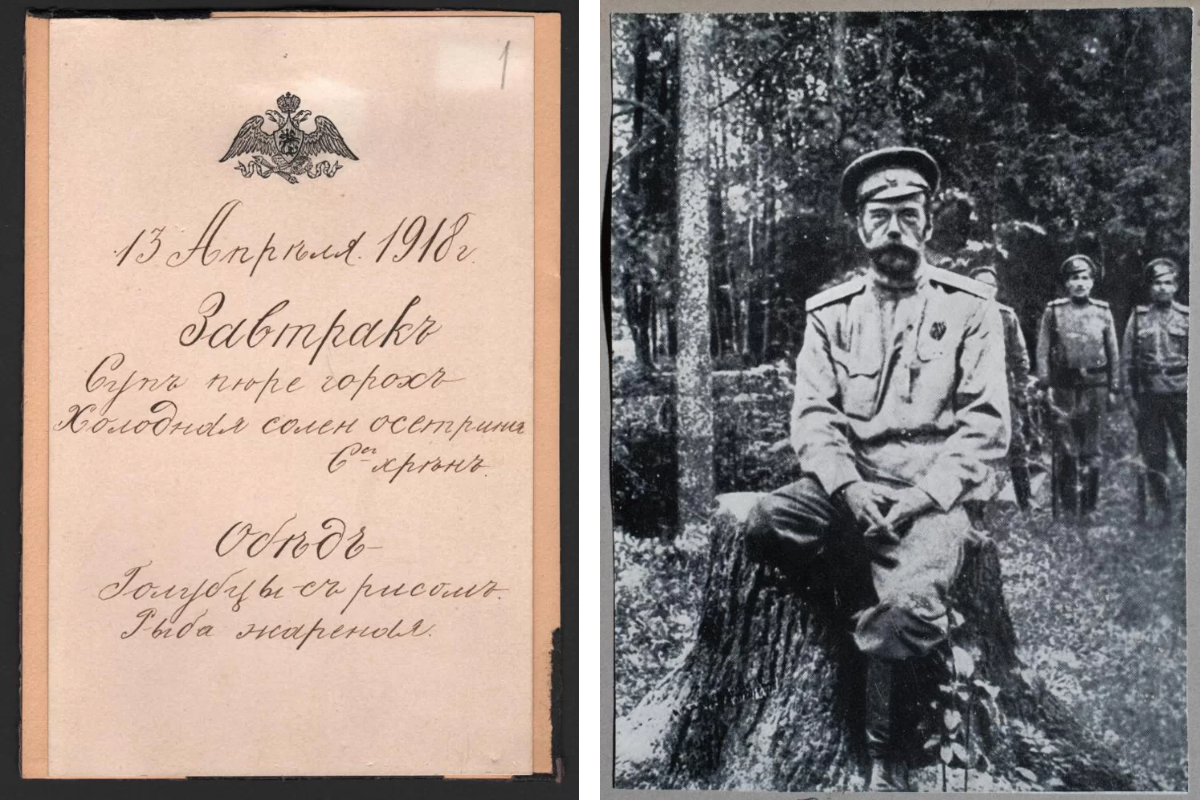 1
13 Апрѣля 1918г.
Завтракъ
Супъ пюре горохъ
Холодная солен осетрина
Съ хрѣнъ.
Обѣдъ
Голубцы съ рисомъ.
Рыба жареная.